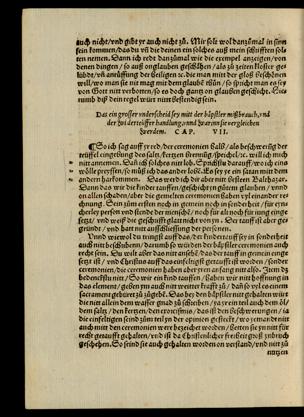 auch nicht/und gibt yr auch nicht zů. Mir sole wol darzůmal in sinn
sein kommen/das du vñ die deinen ein solches auß mein schrifften
nemen. Dann ich redt darzůmal wie die exempel anzeigen/von
denen dingen/so auß onglauben geschåhen/als zů zeiten
/und anrüffung der Heiligen ꝛc. die man mitt der gloß
will/wo sie nit mag mit dem glaubē/so spricht man es sey
von Gott nitt verbotten/so es doch gantz on glauben geschicht.
rumb diß dein regel würt nitt Bestendig sein.
Das ein grosser underscheid sey mitt der båpstler mißbrauch, und
der handlung, und
werdem. CAP. VII.
So ich sag auff yr red/der ceremonien halb/als beschwerung der
teüffel eingebung des saltz/kertzen/speichel/ꝛc. will ich
nitt annemen. Daß ich solches nitt lob. Sprichstu darauff/wo ich eins
wölle preysen/so můß ich das ander loben. Es sey ye ein satan mit dem
andern harkommen. Das werd ich dir aber nitt Gesteen Balthazar.
Dann das wir die kinder tauffen/geschicht yn gůtem glauben/unnd
on allen schaden/aber die gemelten ceremonien haben vyl einander
ehrung. Sein zům ersten noch in gemein noch in sonderheit/für
cherley person und stende der menschē/noch für all noth für
setzt/und weiß die geschrifft glatt nicht von yn. Der tauff ist aber
gründt/und hatt nitt außschliessung der personen.
Unnd wiewol du tringst auff das/der kindertauff sey in sonderheit
auch nitt beschriben/darumb so würt der båpstler ceremonien auch
recht sein. Du wolt aber das nitt ansehē/das der tauff in gemein eingesetzt
ist/und Christus auff das einfeltigst getaufft ist worden/sonder
ceremonien/die ceremonien haben aber yren anfang nitt also. Item
bedenckstu nitt/So wir ein kind tauffen/haben wir nitt hoffnung in
das element/geben ym auch nitt weitter krafft zů/dañ so vyl es einem
sacrament gebürt zů zůgebē. Das bey den båpstler nitt gehalten würt
die nitt allein dem wasser gnad zů schreiben/ja yrein tail auch dem
dem saltz/den kertzen/den exorcismis/das ist den Beschwerungen/ja
die einfeltigen seind zům teyl yn der opinion gesteckt/wo yemant
auch mitt den ceremonien were bezeichet worden/hetten sie yn nitt für
recht getaufft gehalten/und ist da Christenlicher freiheit groß
geschehen. So seind sie auch gehalten worden on verstand/und nitt zů
nutzen